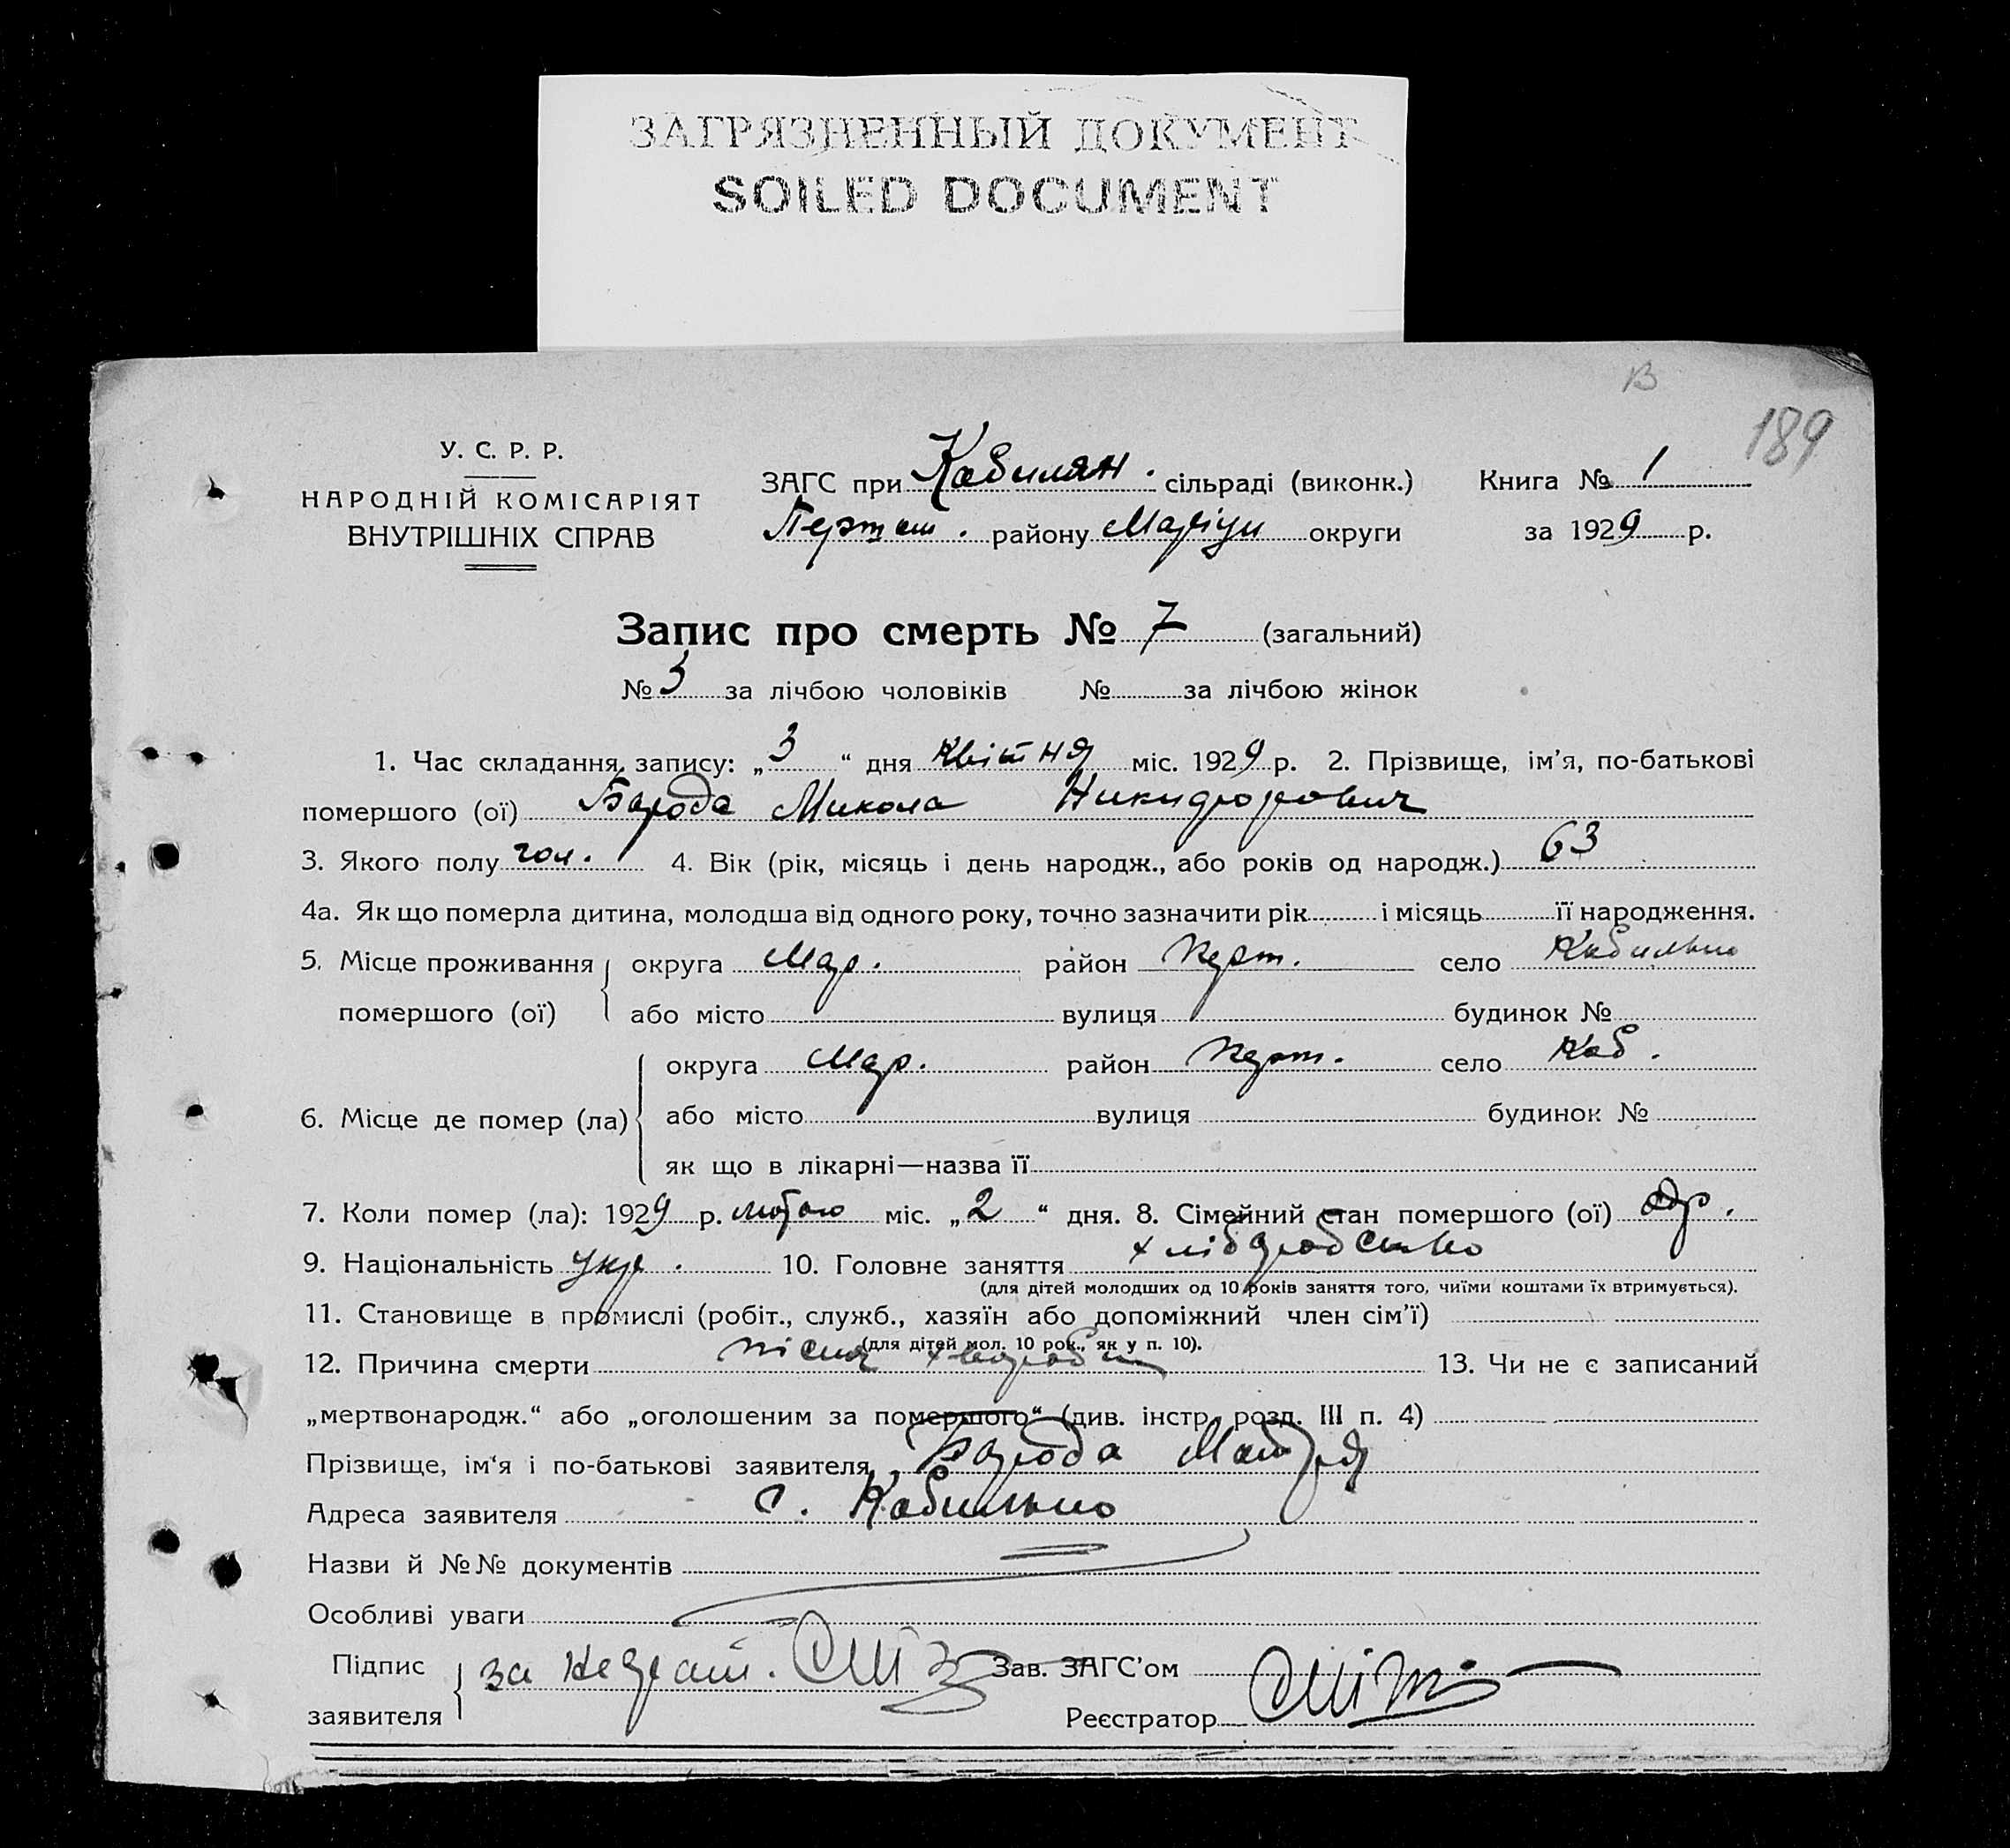 ЗАГРЯЗНЕННЫЙ ДОКУМЕНТ
SOILED DOCUMENT
В
189
У. С. Р. Р.
НАРОДНІЙ КОМІСАРІЯТ
ВНУТРІШНІХ СПРАВ
ЗАГС при Кобилян. сільраді (виконк.) Книга № 1
району округи за 1929 р.
Запис про смерть № 7 (загальний)
№ 3 за лічбою чоловіків № за лічбою жінок
1. Час складання запису: „3“ дня квітня міс. 1929 р. 2. Прізвище, ім'я, по-батькові
помершого (ої) Борода Микола Никифорович
3. Якого полу чол. 4. Вік (рік, місяць і день народж., або років од народж.) 63
4а. Як що померла дитина, молодша від одного року, точно зазначити рік і місяць її народження.
5. Місце проживання округа Мар. район село
помершого (ої) або місто вулиця будинок №
округа Мар. район село Коб.
6. Місце де помер (ла) або місто вулиця будинок №
як що в лікарні—назва її
7. Коли помер (ла): 1929 р. лютого міс. „2“ дня. 8. Сімейний стан помершого (ої) одр.
9. Національність укр. 10. Головне заняття хліборобство
(для дітей молодших од 10 років заняття того, чиїми коштами їх втримується).
11. Становище в промислі (робіт., служб., хазяїн або допоміжний член сім'ї)
(для дітей мол. 10 рок., як у п. 10).
12. Причина смерти після хвороби 13. Чи не є записаний
„мертвонародж.“ або „оголошеним за помершого“ (див. інстр. розд. III п. 4)
Прізвище, ім'я і по-батькові заявителя Борода
Адреса заявителя с.
Назви й №№ документів
Особливі уваги
Підпис за неграт. Зав. ЗАГС'ом
заявителя Реєстратор